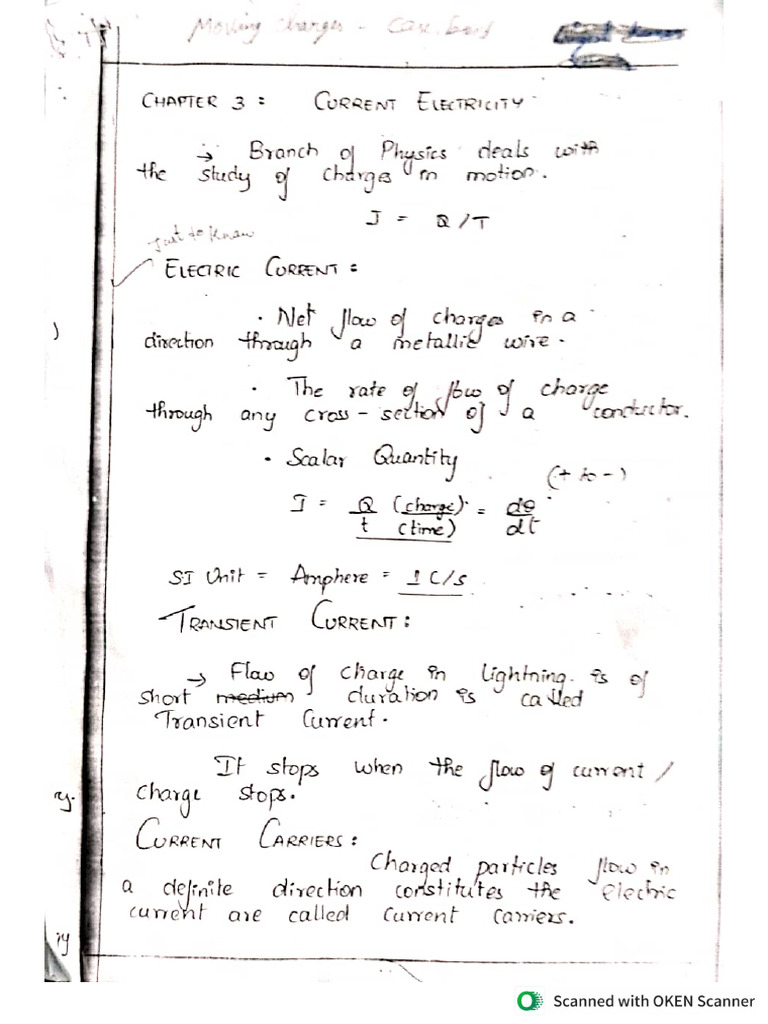 Moving charges - Case based
CHAPTER 3 : CURRENT ELECTRICITY
→ Branch of Physics deals with
the study of charges in motion.
I = Q/T
Just to know
ELECTRIC CURRENT :
· Net flow of charges in a
direction through a metallic wire.
· The rate of flow of charge
through any cross-section of a conductor.
· Scalar Quantity
(+ to -)
I = Q/t (charge)/(time) = dQ/dt
SI Unit = Amphere = 1 C/s
TRANSIENT CURRENT :
→ Flow of charge in lightning is of
short medium duration is called
Transient Current.
It stops when the flow of current /
charge stops.
CURRENT CARRIERS :
Charged particles flow in
a definite direction constitutes the electric
current are called current carriers.
Scanned with OKEN Scanner